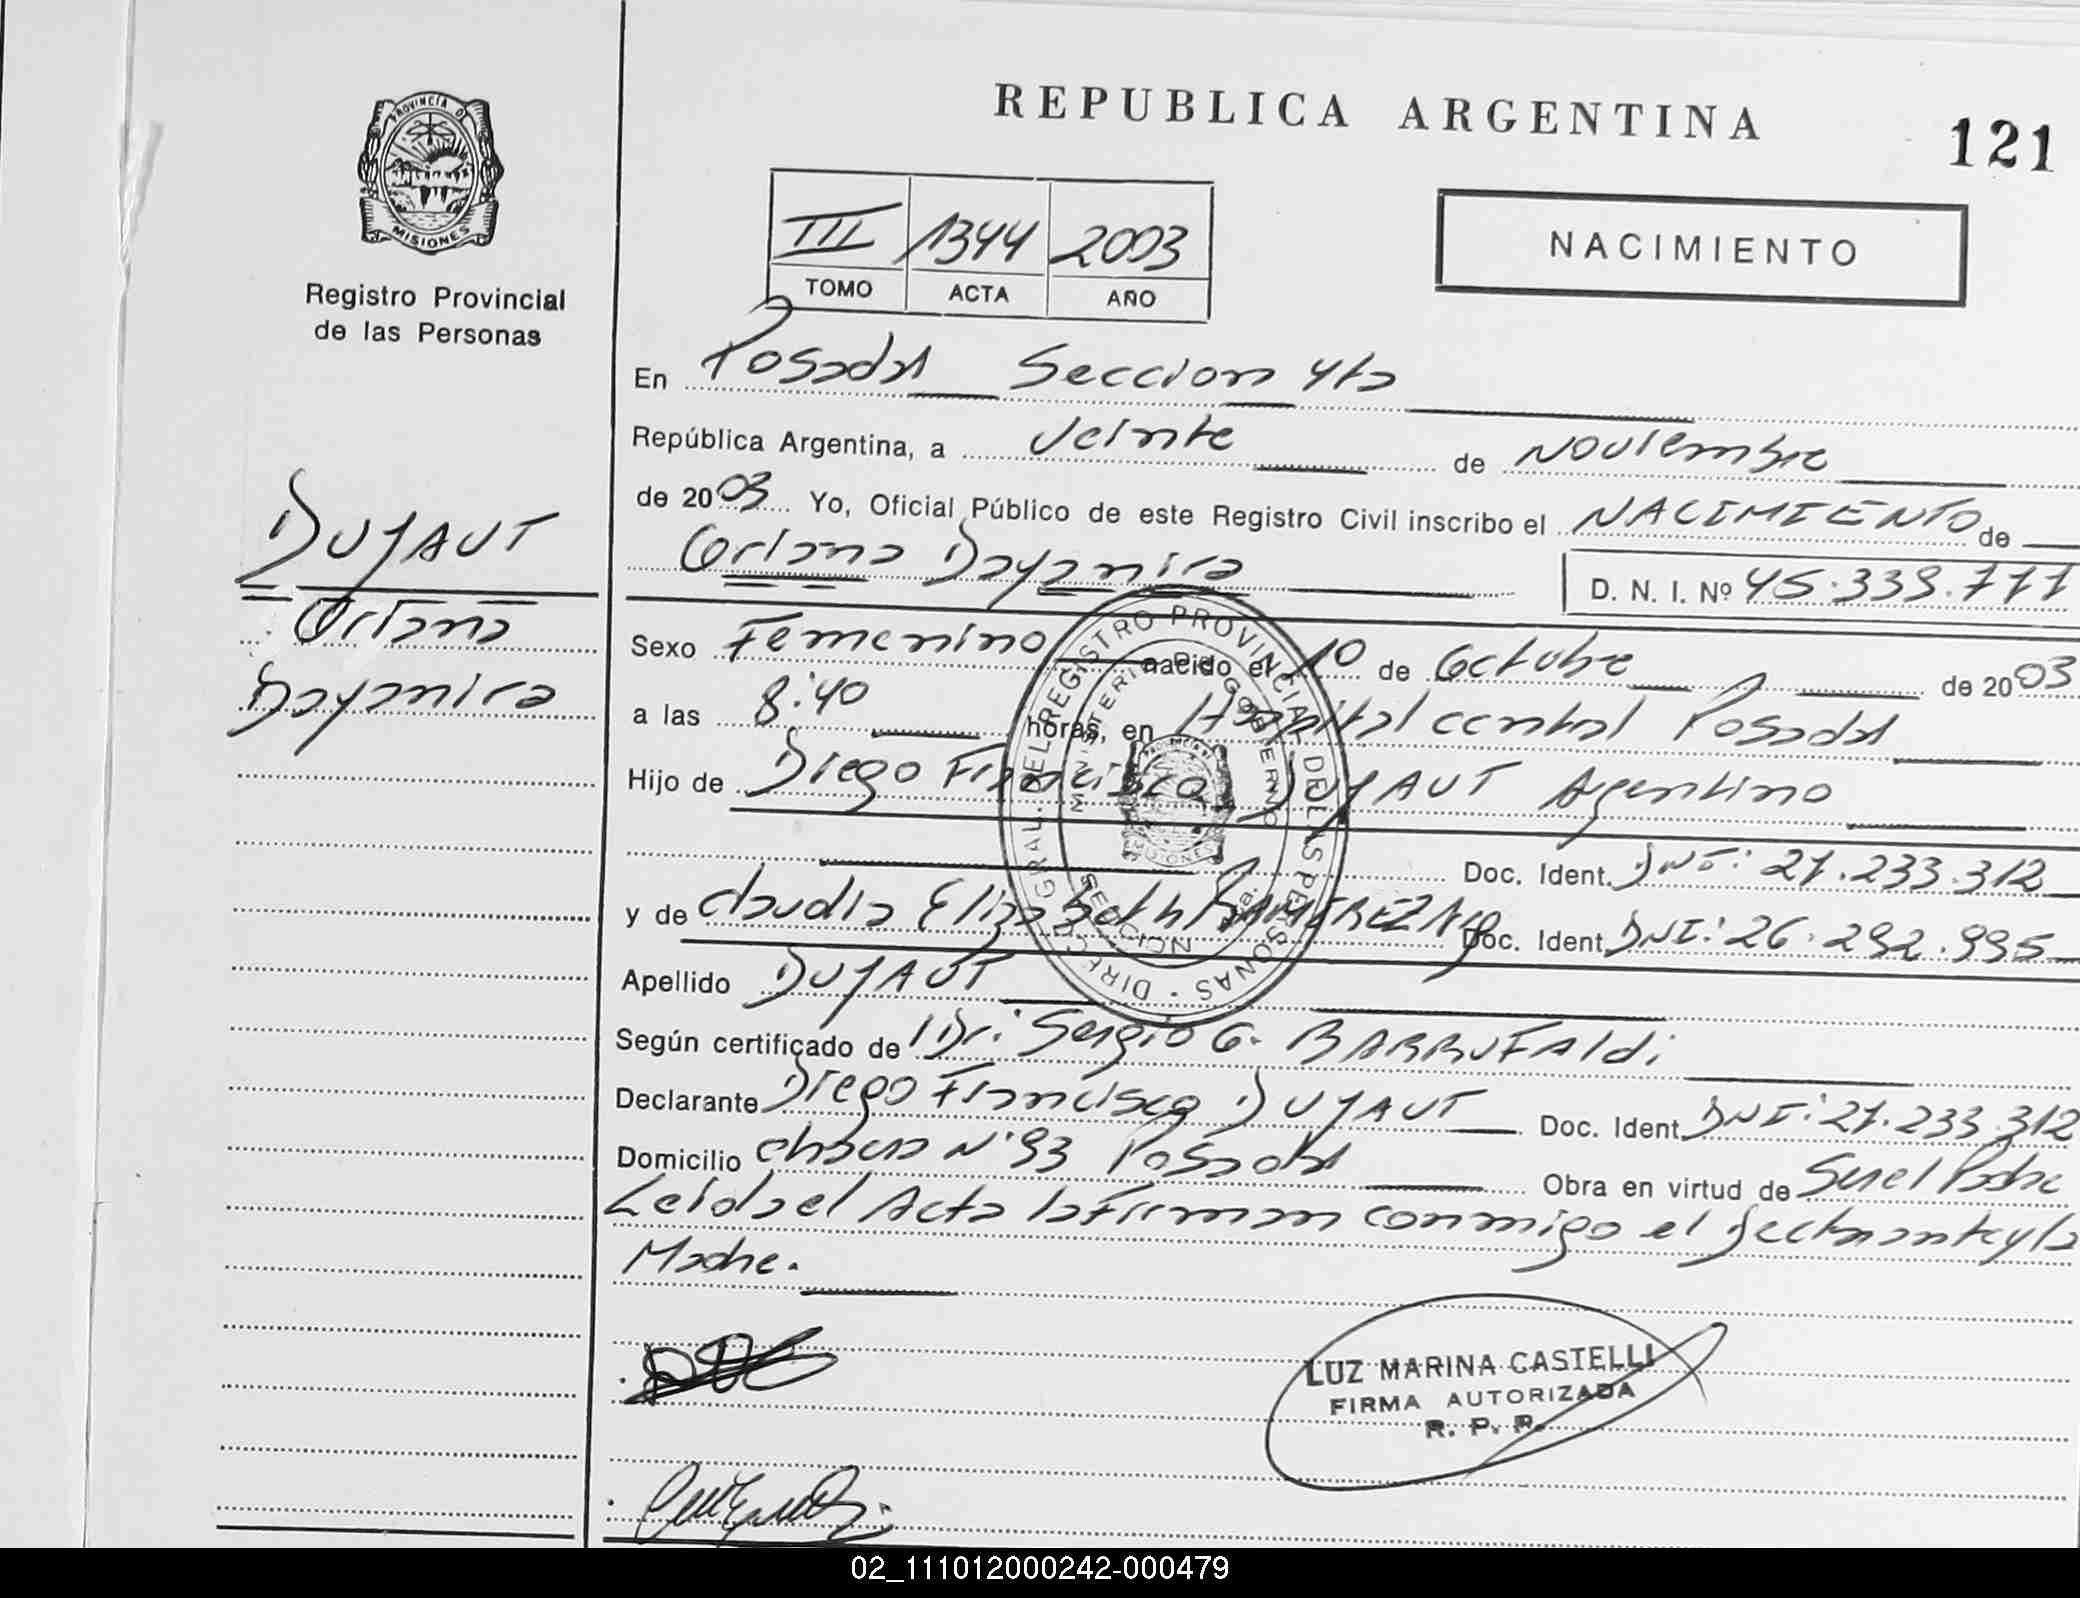 REPUBLICA ARGENTINA
121
PROVINCIA DE
MISIONES
Registro Provincial
de las Personas
III 1344 2003
TOMO ACTA AÑO
NACIMIENTO
En Posadas Seccion 4ta
República Argentina, a veinte de Noviembre
de 2003 Yo, Oficial Público de este Registro Civil inscribo el NACIMIENTO de
Oriana Dayanira
D. N. I. Nº 45.339.777
DUJAUT
Oriana
Dayanira
Sexo Femenino nacido el 10 de Octubre de 2003
a las 8:40 horas, en Hospital central Posadas
Hijo de Diego Francisco DUJAUT Argentino
Doc. Ident. DNI: 27.233.312
y de Claudia Elizabeth RAMIREZ Arg Doc. Ident. DNI: 26.292.995
Apellido DUJAUT
Según certificado de Dr. Sergio G. BARRUFALdi
Declarante Diego Francisco DUJAUT Doc. Ident. DNI: 27.233.312
Domicilio chacra Nº 93 Posadas Obra en virtud de Ser el Padre
Leida el Acta la Firman conmigo el declarante y la
Madre.
DIREC. GRAL. DEL REGISTRO PROVINCIAL DE LAS PERSONAS
MINISTERIO DE GOBIERNO
LUZ MARINA CASTELLI
FIRMA AUTORIZADA
R. P. P.
02_111012000242-000479